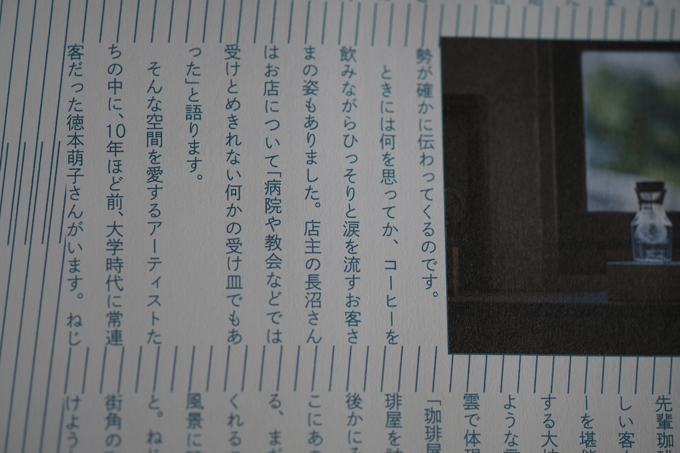 勢が確かに伝わってくるのです。
ときには何を思ってか、コーヒーを
飲みながらひっそりと涙を流すお客さ
まの姿もありました。店主の長沼さん
はお店について「病院や教会などでは
受けとめきれない何かの受け皿でもあ
った」と語ります。
そんな空間を愛するアーティストた
ちの中に、10年ほど前、大学時代に常連
客だった徳本萌子さんがいます。ねじ
先輩珈
しい客
ーを堪能
する大
ような
雲で体現
「珈琲屋
琲屋を
後かに
こにあ
る、まだ
くれる
風景に
と。ねじ
街角の
けよう